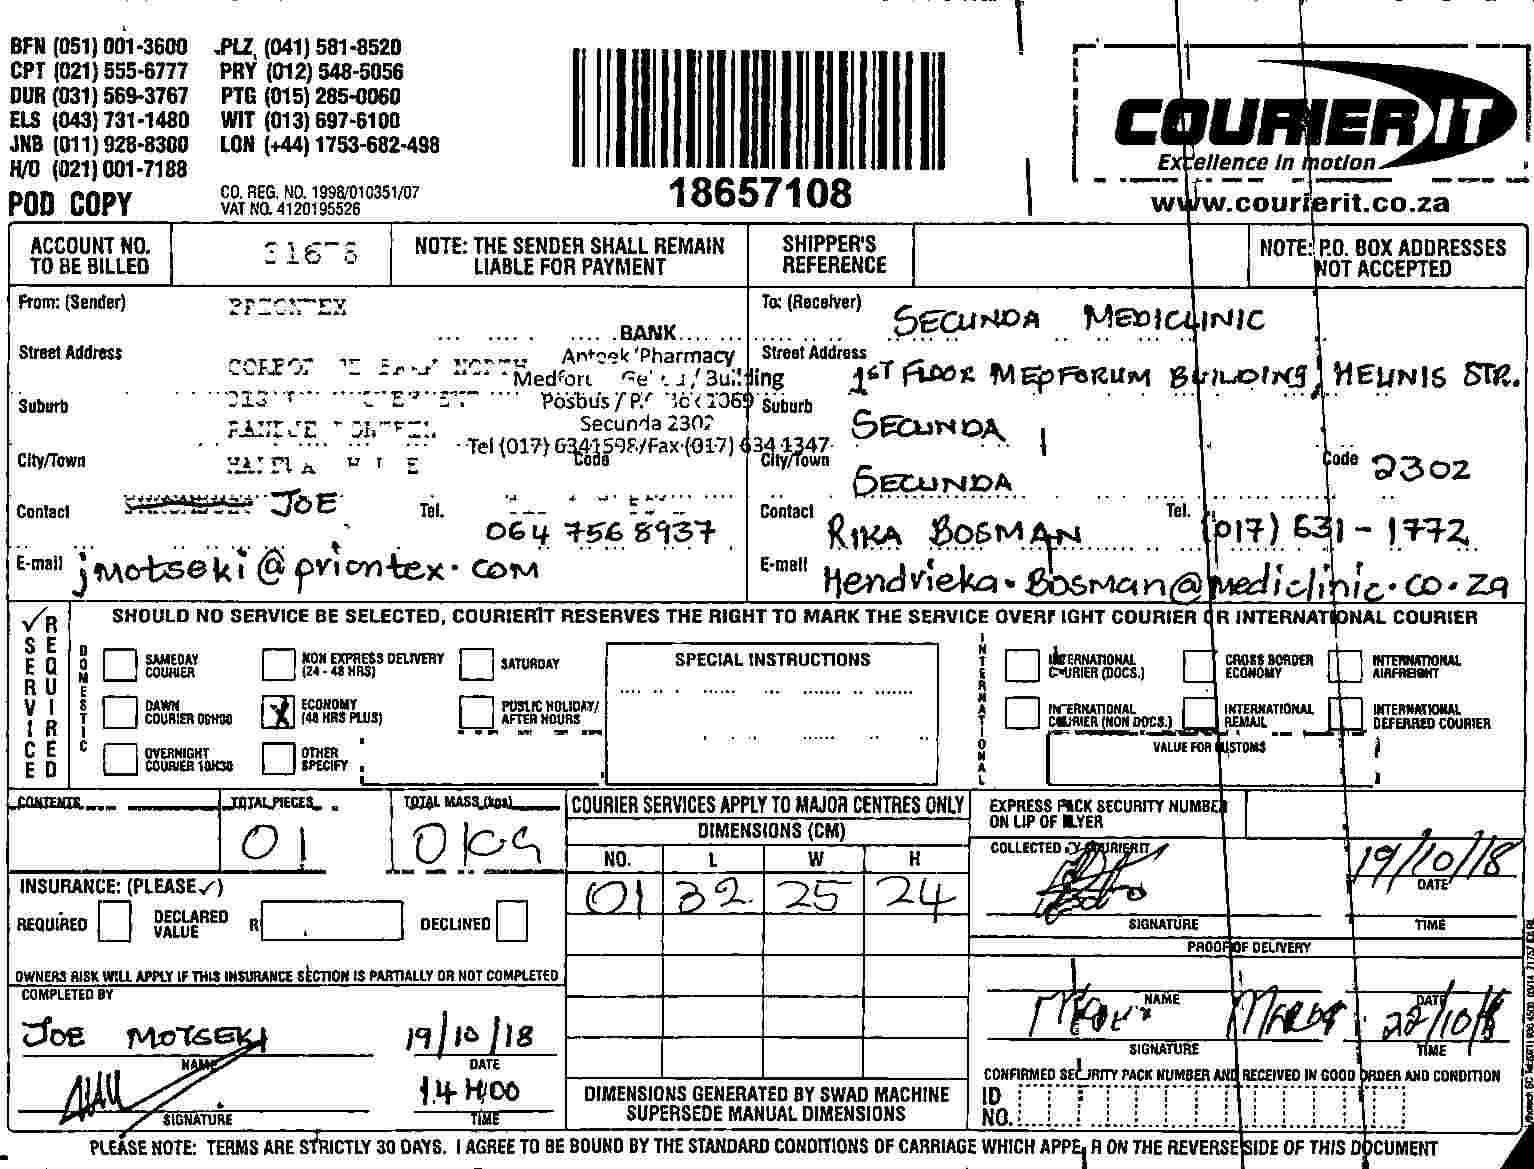 BFN (051) 001-3600 PLZ (041) 581-8520
CPT (021) 555-6777 PRY (012) 548-5056
DUR (031) 569-3767 PTG (015) 285-0060
ELS (043) 731-1480 WIT (013) 697-6100
JNB (011) 928-8300 LON (+44) 1753-682-498
H/O (021) 001-7188
POD COPY
CO. REG. NO. 1998/010351/07
VAT NO. 4120195526
18657108
COURIER IT
Excellence in motion
www.courierit.co.za
ACCOUNT NO. TO BE BILLED 31678
NOTE: THE SENDER SHALL REMAIN LIABLE FOR PAYMENT
SHIPPER'S REFERENCE
NOTE: P.O. BOX ADDRESSES NOT ACCEPTED
From: (Sender) PRIONTEX
BANK
Street Address
Anteek Pharmacy
Medforum Building
Suburb
Posbus / 1069
Secunda 2302
Tel (017) 6341598/Fax (017) 634 1347
City/Town
Code
Contact JOE
Tel. 064 756 8937
E-mail jmotseki@priontex.com
To: (Receiver) SECUNDA MEDICLINIC
Street Address 1ST FLOOR MEDFORUM BUILDING, HEUNIS STR.
Suburb SECUNDA
City/Town SECUNDA
Code 2302
Contact RIKA BOSMAN
Tel. (017) 631-1772
E-mail Hendrieka.Bosman@mediclinic.co.za
SERVICE REQUIRED
SHOULD NO SERVICE BE SELECTED, COURIERIT RESERVES THE RIGHT TO MARK THE SERVICE OVERNIGHT COURIER OR INTERNATIONAL COURIER
DOMESTIC
SAMEDAY COURIER
NON EXPRESS DELIVERY (24 - 48 HRS)
SATURDAY
DAWN COURIER 06H00
X ECONOMY (48 HRS PLUS)
PUBLIC HOLIDAY/ AFTER HOURS
OVERNIGHT COURIER 10H30
OTHER SPECIFY
SPECIAL INSTRUCTIONS
INTERNATIONAL
INTERNATIONAL COURIER (DOCS.)
CROSS BORDER ECONOMY
INTERNATIONAL AIRFREIGHT
INTERNATIONAL COURIER (NON DOCS.)
INTERNATIONAL REMAIL
INTERNATIONAL DEFERRED COURIER
VALUE FOR CUSTOMS
CONTENTS
TOTAL PIECES 01
TOTAL MASS (kgs)
INSURANCE: (PLEASE ✓)
REQUIRED
DECLARED VALUE R
DECLINED
OWNERS RISK WILL APPLY IF THIS INSURANCE SECTION IS PARTIALLY OR NOT COMPLETED
COMPLETED BY
JOE MOTSEKI 19/10/18
NAME DATE
14H00
SIGNATURE TIME
COURIER SERVICES APPLY TO MAJOR CENTRES ONLY
DIMENSIONS (CM)
NO. L W H
01 32 25 24
DIMENSIONS GENERATED BY SWAD MACHINE SUPERSEDE MANUAL DIMENSIONS
EXPRESS PACK SECURITY NUMBER ON LIP OF FLYER
COLLECTED BY COURIERIT
19/10/18
DATE
SIGNATURE TIME
PROOF OF DELIVERY
NAME DATE
22/10/18
SIGNATURE TIME
CONFIRMED SECURITY PACK NUMBER AND RECEIVED IN GOOD ORDER AND CONDITION
ID NO.
PLEASE NOTE: TERMS ARE STRICTLY 30 DAYS. I AGREE TO BE BOUND BY THE STANDARD CONDITIONS OF CARRIAGE WHICH APPEAR ON THE REVERSE SIDE OF THIS DOCUMENT